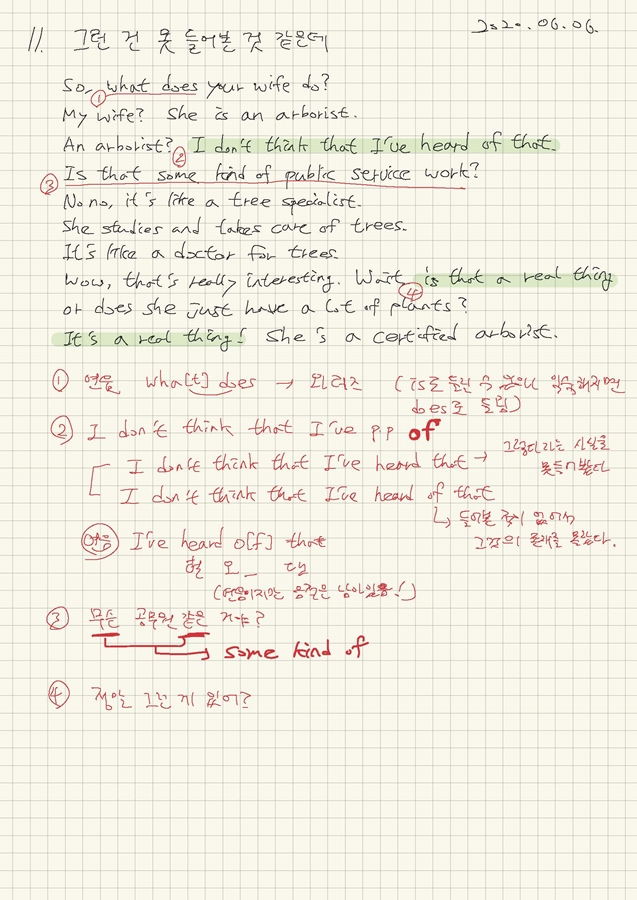 2020.06.06.
11. 그런 건 못 들어본 것 같은데
So, what does your wife do?
①
My wife? She is an arborist.
An arborist? I don't think that I've heard of that.
②
③ Is that some kind of public service work?
No no, it's like a tree specialist.
She studies and takes care of trees.
It's like a doctor for trees.
Wow, that's really interesting. Wait, is that a real thing
④
or does she just have a lot of plants?
It's a real thing! She's a certified arborist.
① 연음 wha[t] does → 와러즈 (is로 들릴 수 있으니 익숙해지면
does로 들림)
② I don't think that I've p.p of
I don't think that I've heard that → 그렇다라는 사실을
못들어봤다
I don't think that I've heard of that
↳ 들어본 적이 없어서
그것의 존재를 몰랐다.
연음 I've heard o[f] that
헐 오_ 댓
(연음이지만 음절은 남아있음!)
③ 무슨 공무원 같은 거야?
→ some kind of
④ 정말 그런 게 있어?